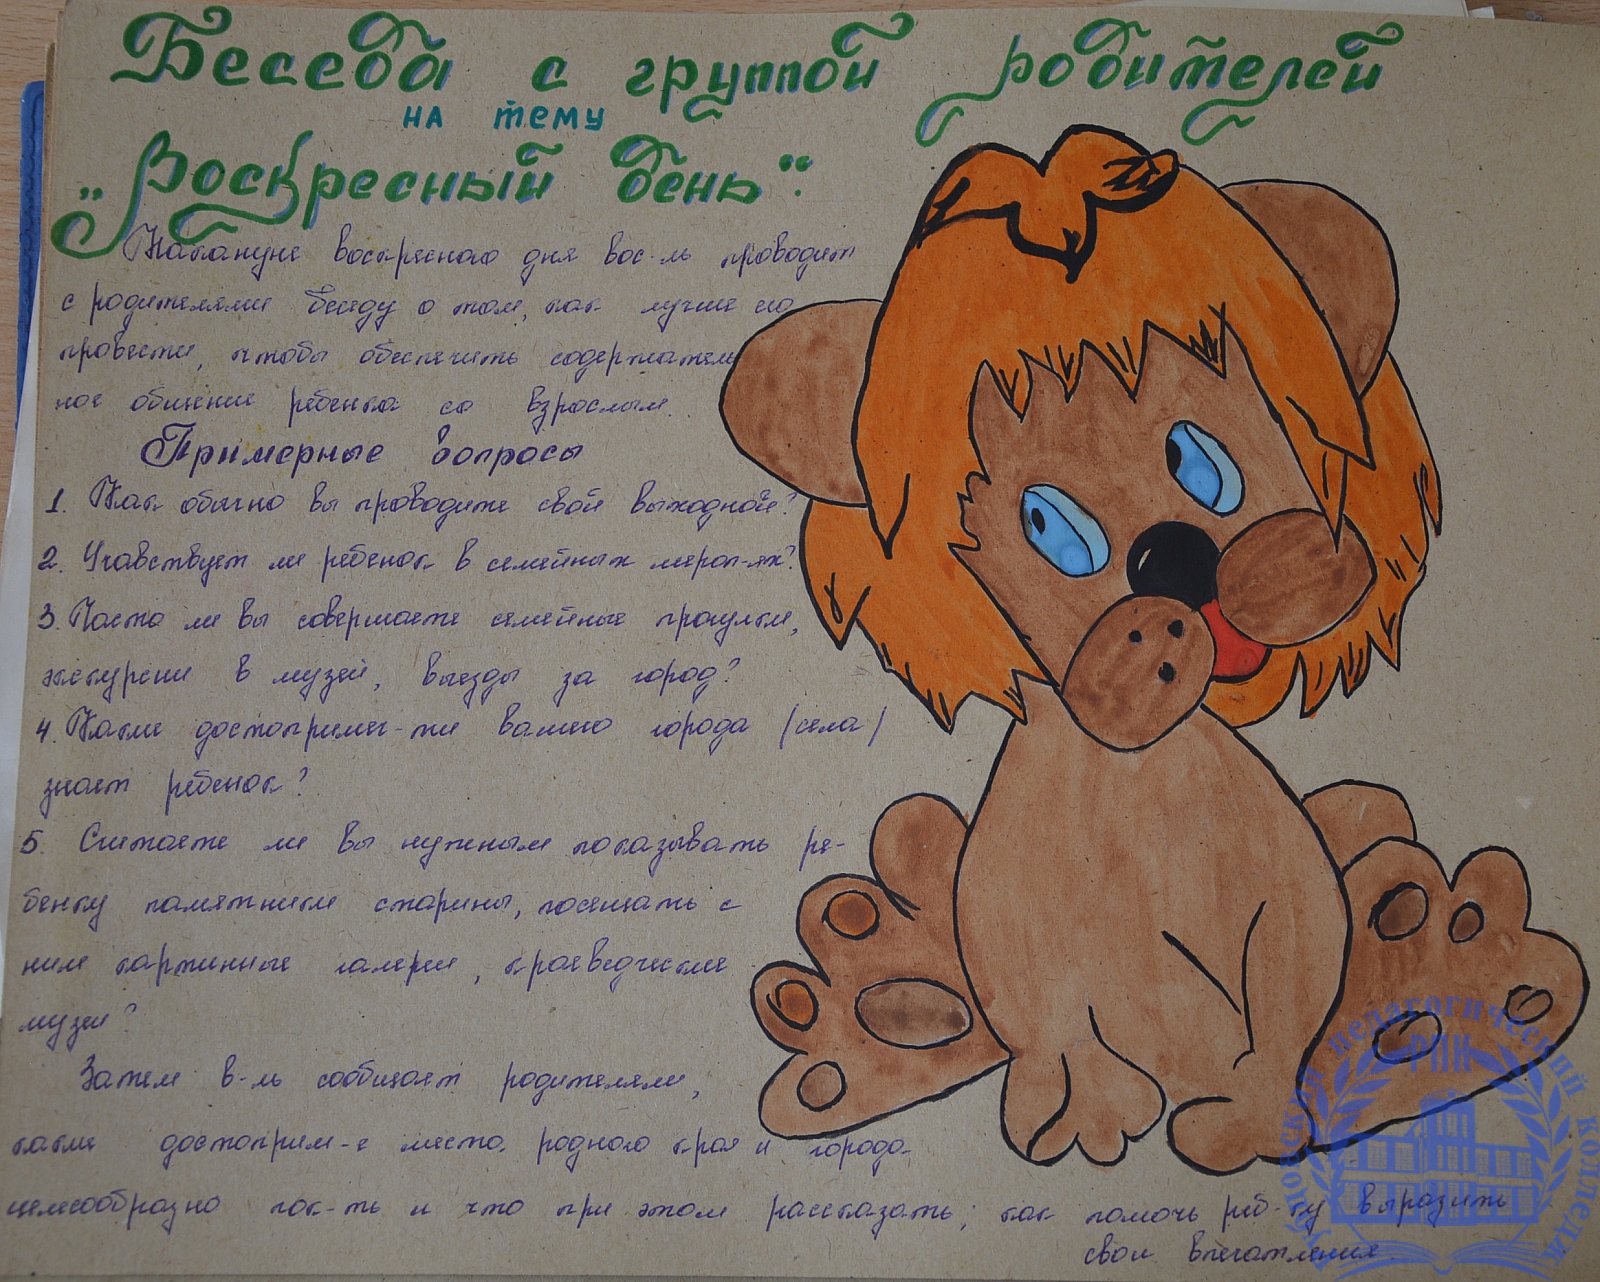 Беседа с группой родителей
на тему
„Воскресный день“.
Накануне воскресного дня вос-ль проводит
с родителями беседу о том, как лучше его
провести, чтобы обеспечить содержатель
ное общение ребенка со взрослым.
Примерные вопросы
1. Как обычно вы проводите свой выходной?
2. Учавствует ли ребенок в семейных мероп-ях?
3. Часто ли вы совершаете семейные прогулки,
экскурсии в музей, выезды за город?
4. Какие достопримеч-ти вашего города /села/
знает ребенок?
5. Считаете ли вы нужным показывать ре-
бенку памятники старины, посещать с
ним картинные галереи, краеведческие
музеи?
Затем в-ль сообщает родителям,
какие достоприм-е места родного края и города
целесообразно пок-ть и что при этом рассказать; как помочь реб-ку выразить
свои впечатления.
педагогический колледж
РПК